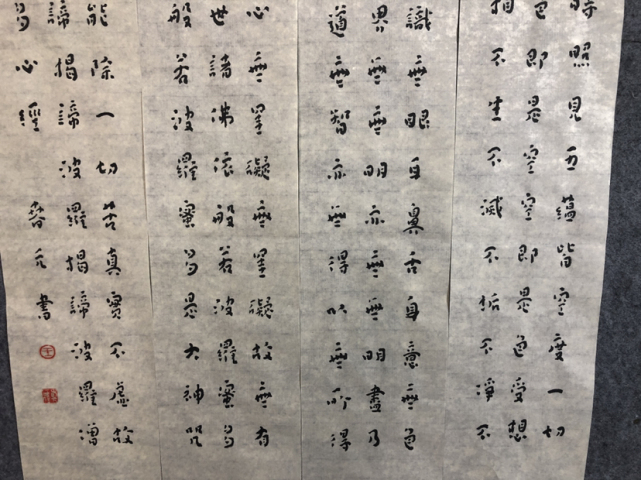 時照見五蘊皆空度一切
色即是空空即是色受想
相不生不滅不垢不淨不
識無眼耳鼻舌身意無色
界無無明亦無無明盡乃
道無智亦無得以無所得
心無罣礙無罣礙故無有
世諸佛依般若波羅蜜多
般若波羅蜜多是大神咒
能除一切苦真實不虛故
諦揭諦波羅揭諦波羅僧
多心經 春元書